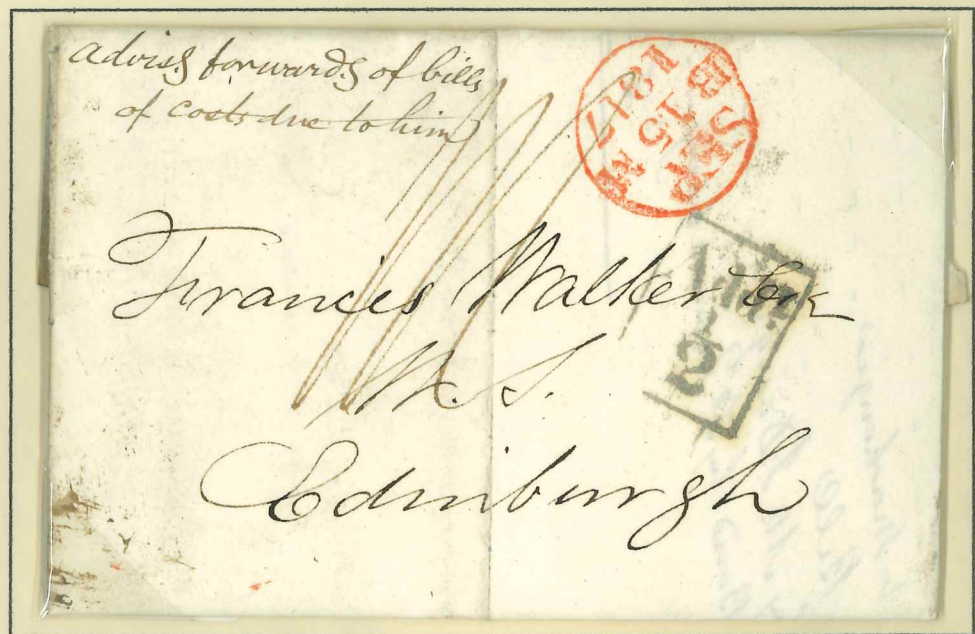 advisg forwardg of bills
of costs due to him
E SEP E
15
1837
½
Francis Walker Esqr
W. S.
Edinburgh